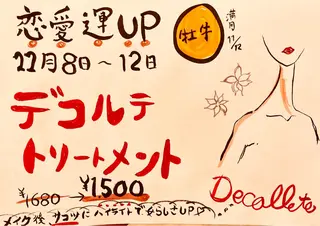 恋愛運UP
11月8日～12日
牡牛
満月
11/12
デコルテ
トリートメント
¥1680 → ¥1500
Decollete
メイク後 サコツにハイライトで女らしさUP